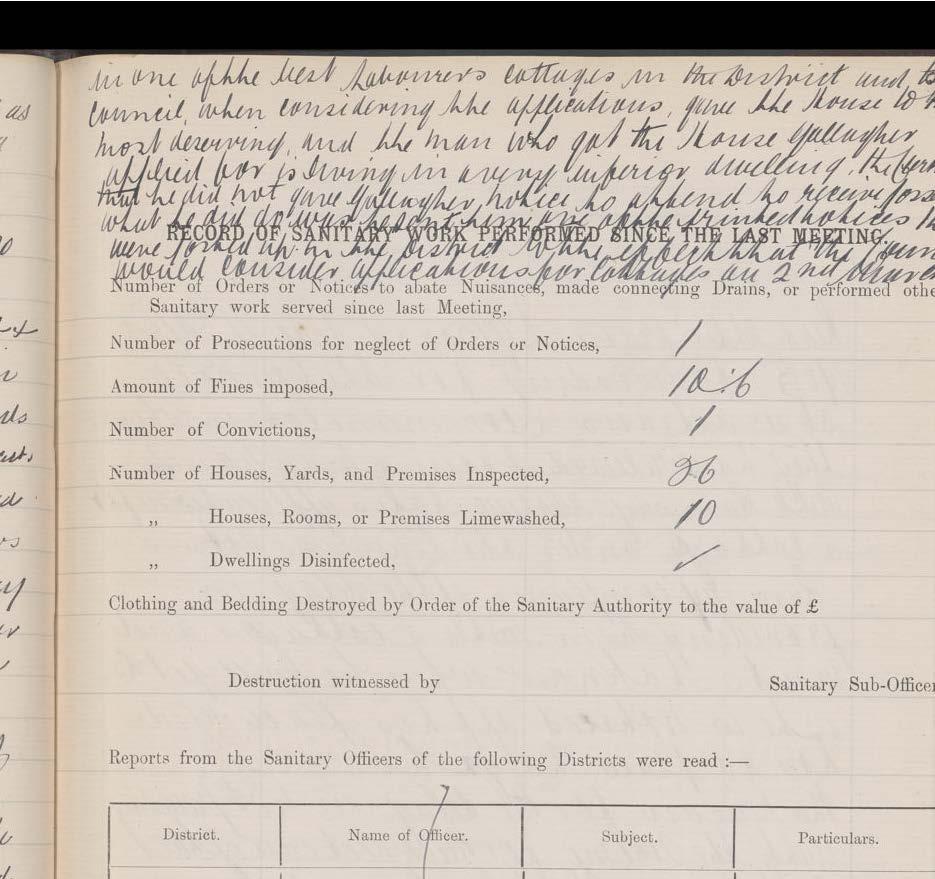 as
in one of the best Labourers cottages in the District and, the
council, when considering the applications, gave the House to the
most deserving, and the man who got the House Gallagher
applied for is living in a very inferior dwelling, the
that he did not gave Gallagher, notice to attend to receive
what he did do was he sent him one of the printed notices
RECORD OF SANITARY WORK PERFORMED SINCE THE LAST MEETING.
were posted up in the District to the effect that the
would consider applications for Cottages on 2nd
Number of Orders or Notices to abate Nuisances, made connecting Drains, or performed othe
Sanitary work served since last Meeting,
Number of Prosecutions for neglect of Orders or Notices, 1
Amount of Fines imposed, 10:6
Number of Convictions, 1
Number of Houses, Yards, and Premises Inspected, 26
„ Houses, Rooms, or Premises Limewashed, 10
„ Dwellings Disinfected, ✓
Clothing and Bedding Destroyed by Order of the Sanitary Authority to the value of £
Destruction witnessed by Sanitary Sub-Officer
Reports from the Sanitary Officers of the following Districts were read :—
District. Name of Officer. Subject. Particulars.